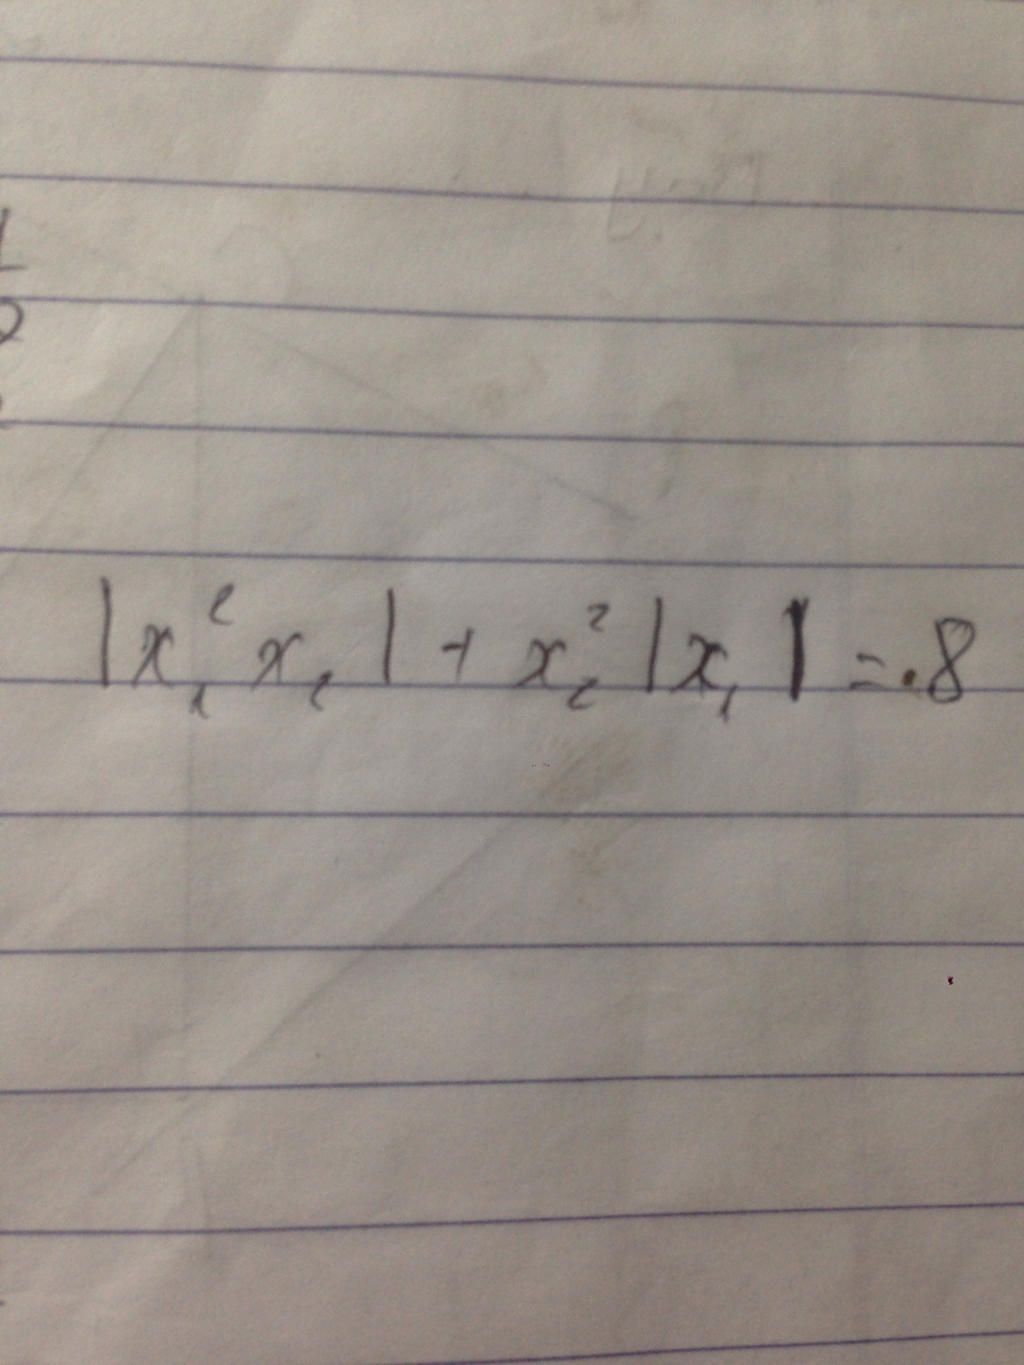 |x₁² x₂| + x₂² |x₁| = .8